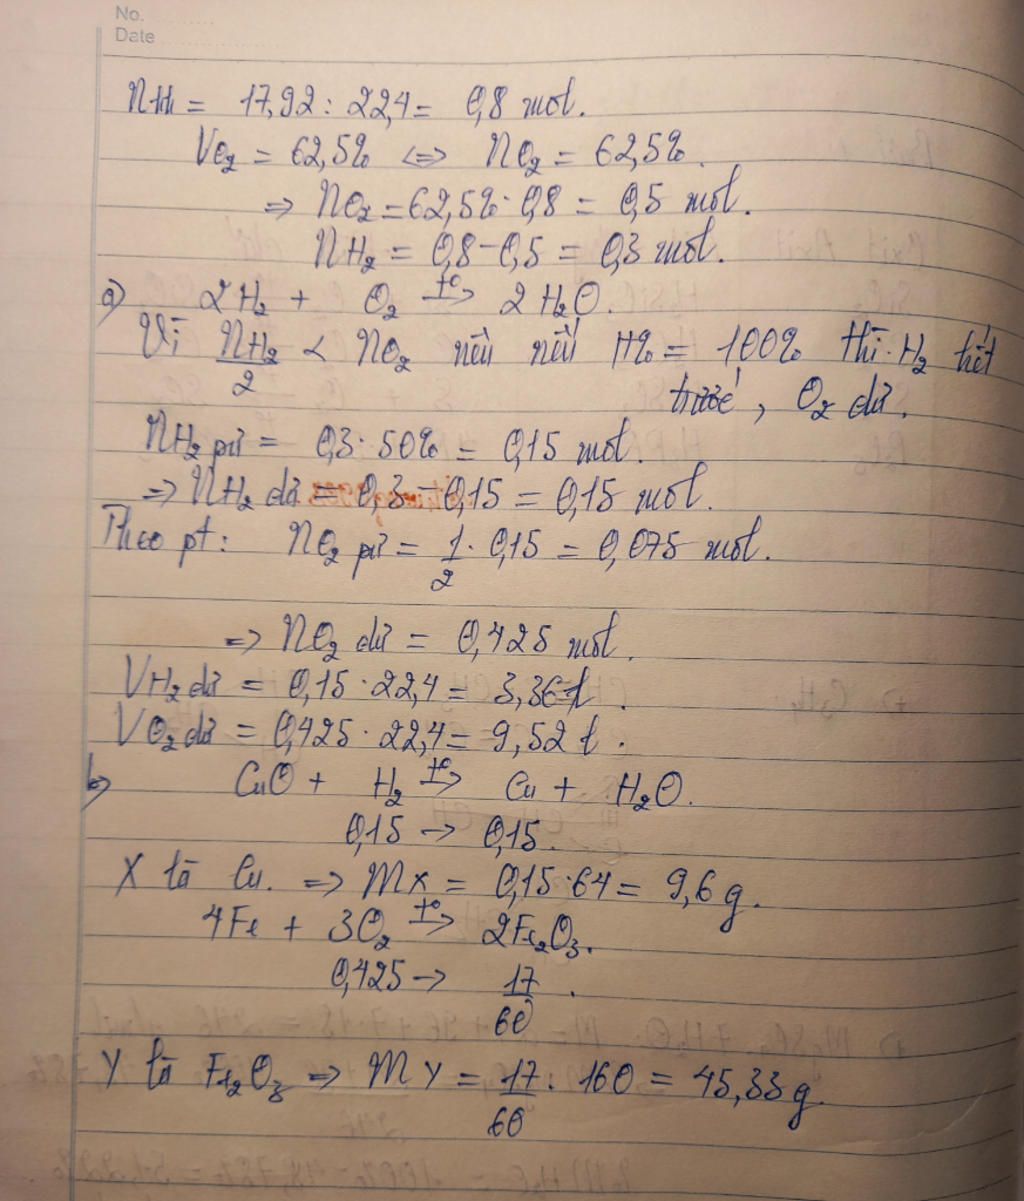 No.
Date
nhh = 17,92 : 22,4 = 0,8 mol.
VO₂ = 62,5% <=> nO₂ = 62,5%.
=> nO₂ = 62,5% . 0,8 = 0,5 mol.
nH₂ = 0,8 - 0,5 = 0,3 mol.
a) 2H₂ + O₂ t°→ 2H₂O.
Vì nH₂/2 < nO₂ nên nếu H% = 100% thì H₂ hết
trước, O₂ dư.
nH₂ pư = 0,3 . 50% = 0,15 mol.
=> nH₂ dư = 0,3 - 0,15 = 0,15 mol.
Theo pt: nO₂ pư = 1/2 . 0,15 = 0,075 mol.
=> nO₂ dư = 0,425 mol.
VH₂ dư = 0,15 . 22,4 = 3,36 l.
VO₂ dư = 0,425 . 22,4 = 9,52 l.
b) CuO + H₂ t°→ Cu + H₂O.
0,15 → 0,15.
X là Cu. => mX = 0,15 . 64 = 9,6 g.
4Fe + 3O₂ t°→ 2Fe₂O₃.
0,425 → 17/60.
Y là Fe₂O₃ => mY = 17/60 . 160 = 45,33 g.